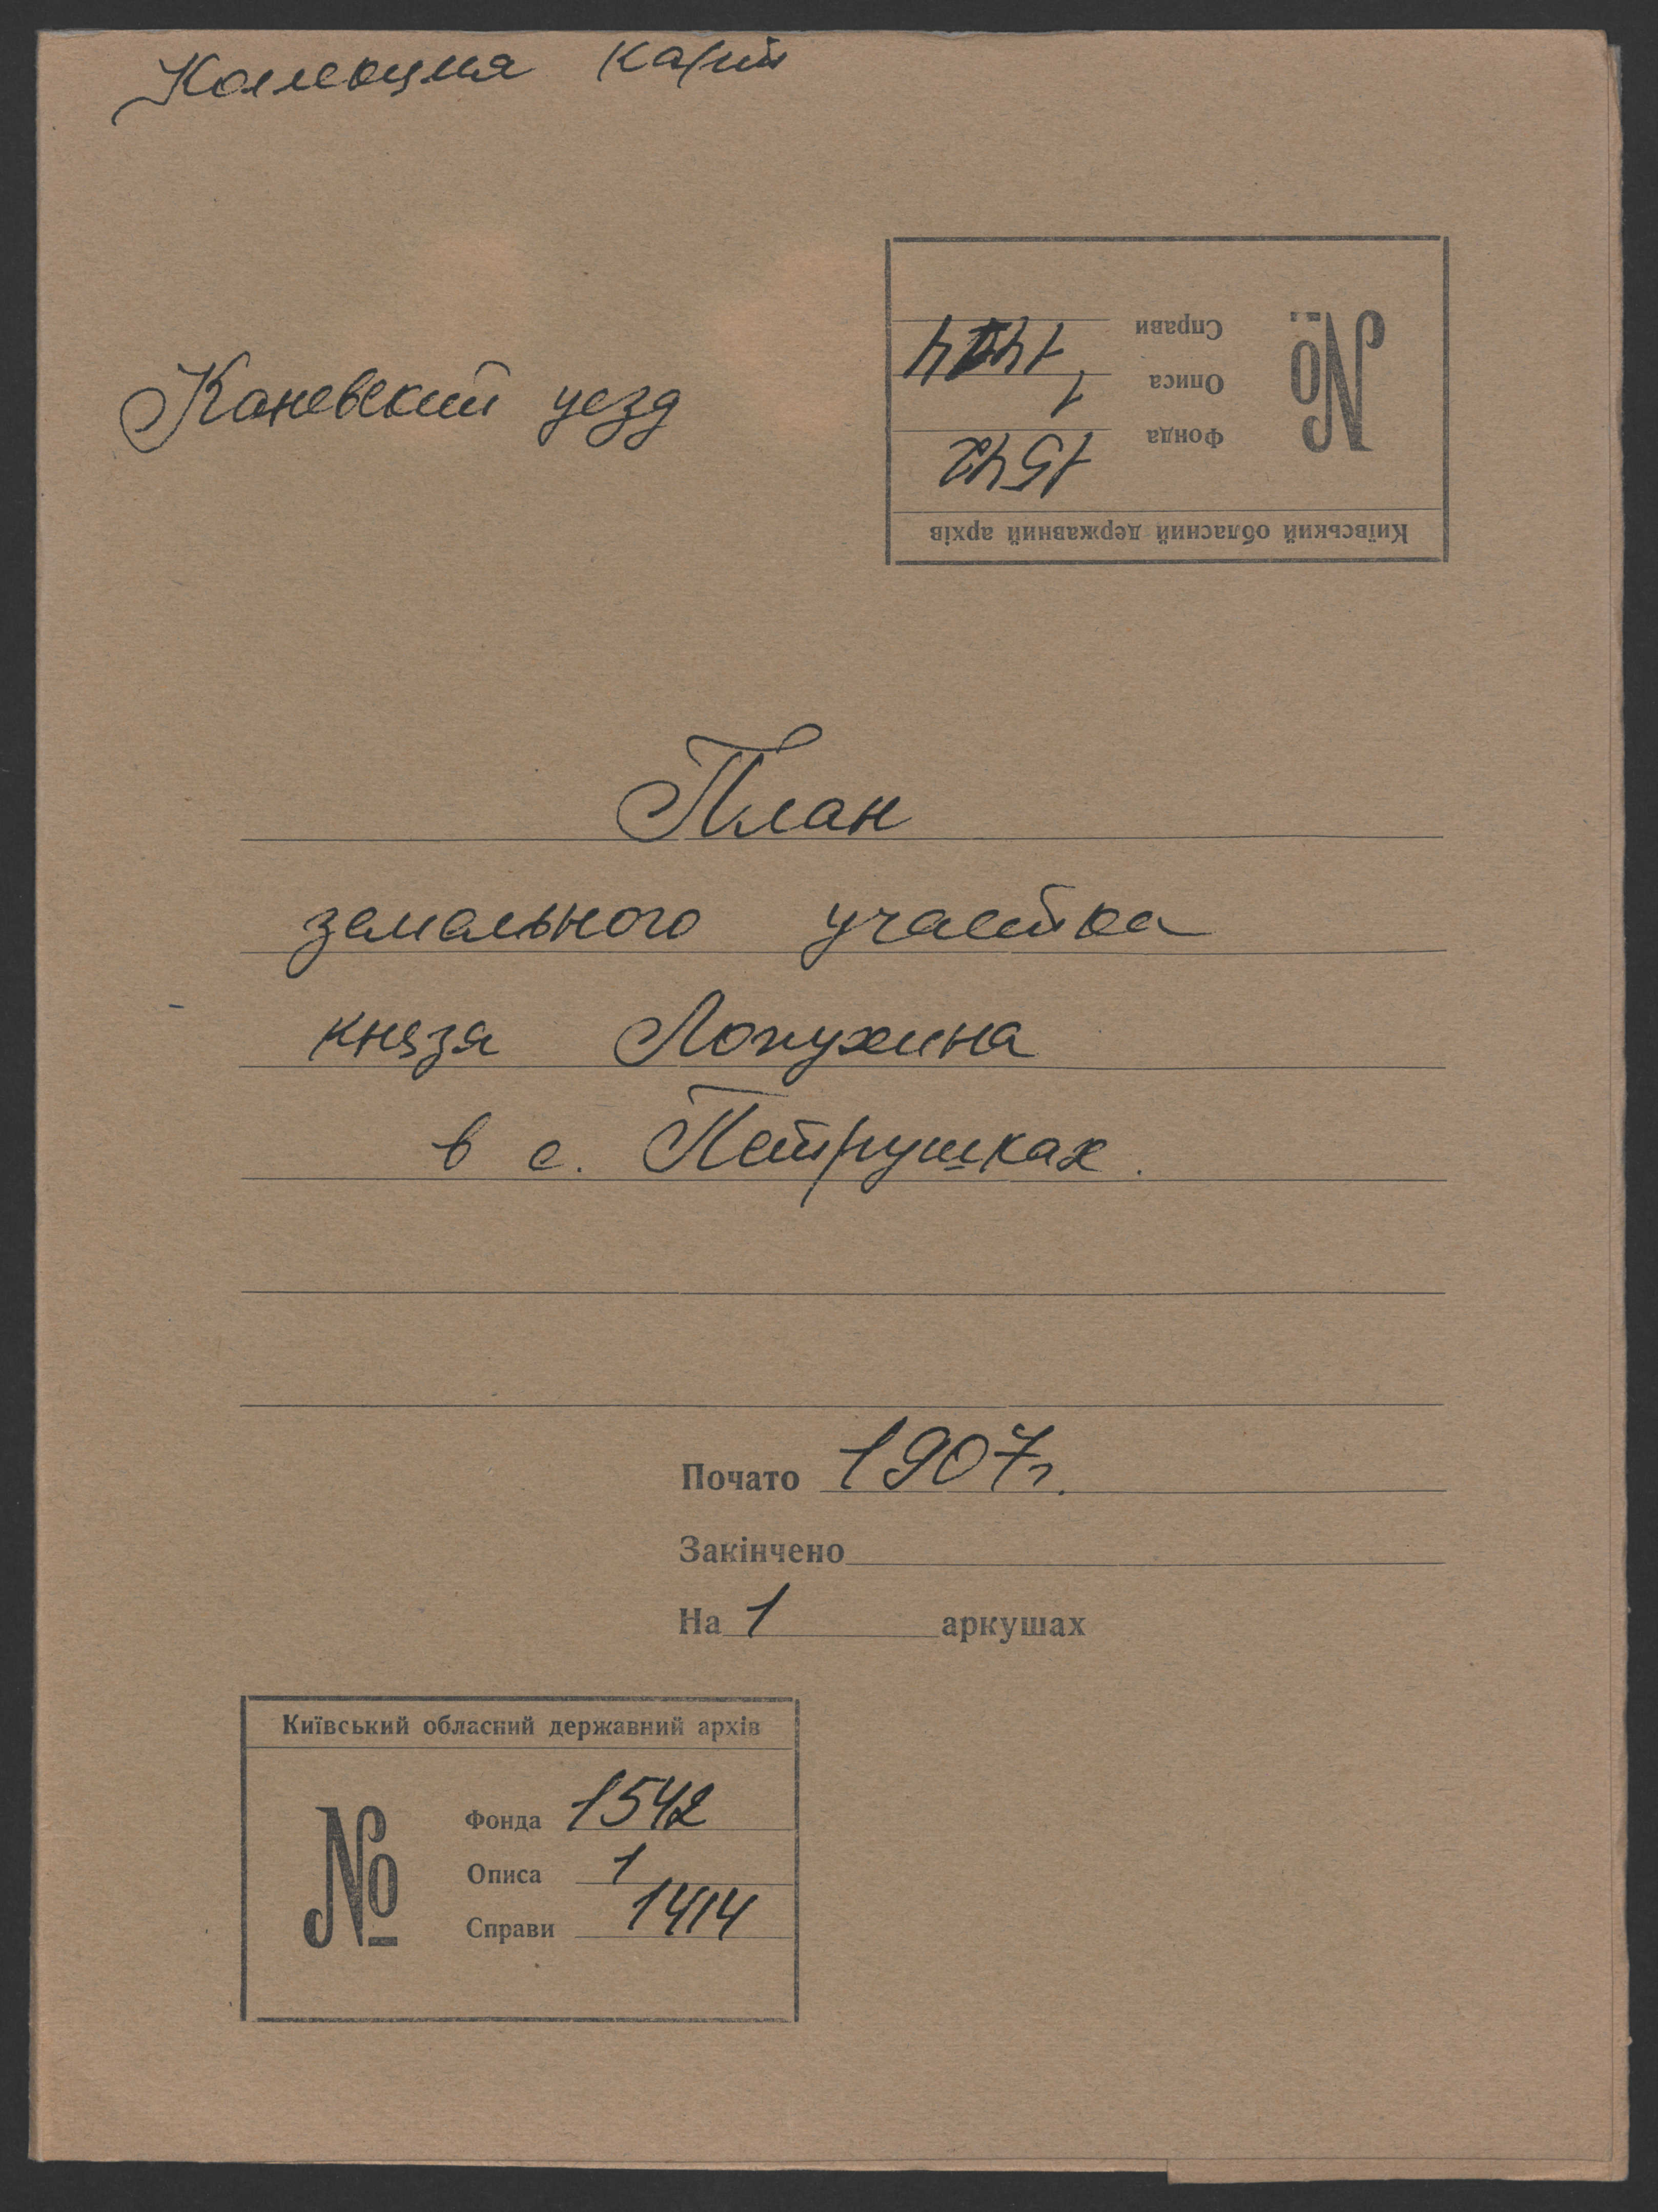 Коллекция карт
Каневский уезд
Київський обласний державний архів
№
Фонда 1542
Описа 1
Справи 1414
План
земельного участка
князя Лопухина
в с. Петрушках.
Почато 1907г.
Закінчено
На 1 аркушах
Київський обласний державний архів
№
Фонда 1542
Описа 1
Справи 1414